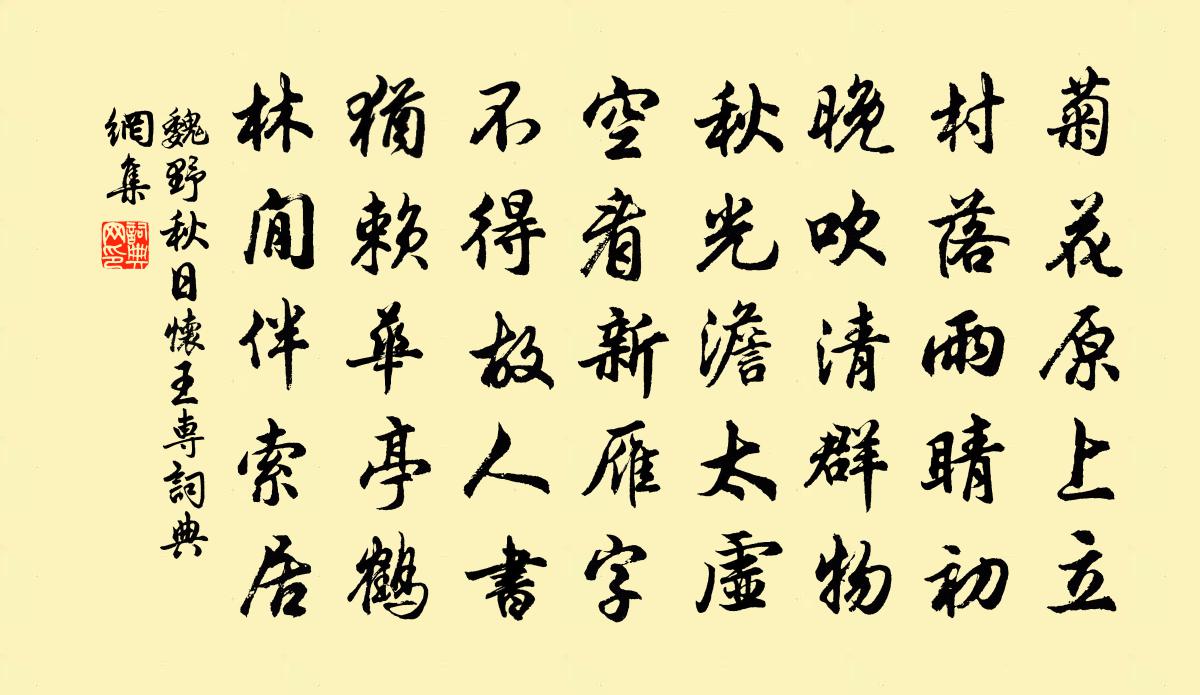 菊花原上立
村落雨晴初
晚吹清群物
秋光澹太虛
空看新雁字
不得故人書
猶賴華亭鶴
林間伴索居
魏野秋日懷王專詞典
網集
詞典网印